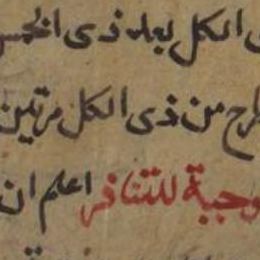 الكل بعد ذى الخمس
طرح من ذى الكل مرتين
وجبة للتنافر اعلم ان